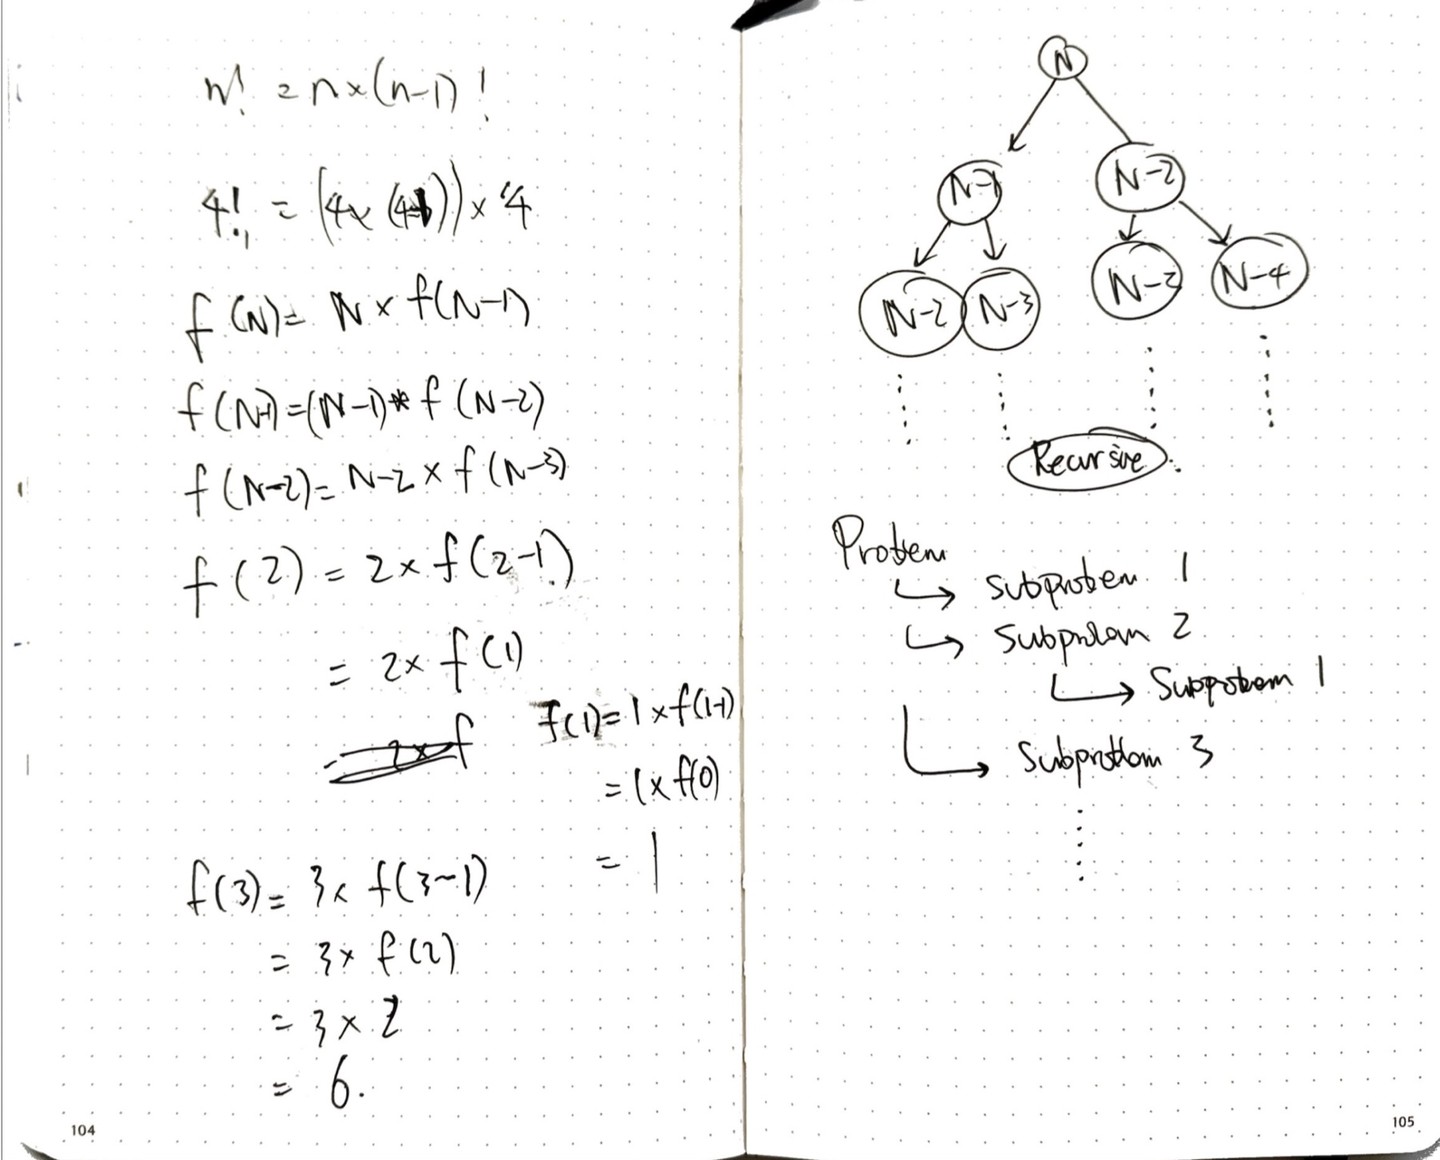 n! = n×(n-1)!
4! = (4×(4-1))×4
f(N)= N × f(N-1)
f(N-1)=(N-1)* f(N-2)
f(N-2)= N-2 × f(N-3)
f(2) = 2× f(2-1)
= 2× f(1)
2×f
f(1)= 1×f(1-1)
= 1×f(0)
= 1
f(3)= 3× f(3-1)
= 3× f(2)
= 3×2
= 6.
104
N
N-1 N-2
N-2 N-3 N-3 N-4
Recursive.
Problem
Subproblem 1
Subproblem 2
Subproblem 1
Subproblem 3
105